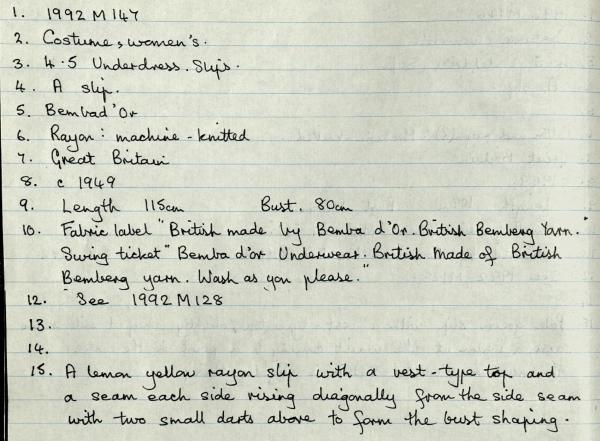 1. 1992 M 147
2. Costume, women's.
3. 4.5 Underdress. Slips.
4. A slip.
5. Bembad'Or
6. Rayon: machine-knitted
7. Great Britain
8. c 1949
9. Length 115cm Bust. 80cm
10. Fabric label "British made by Bemba d'Or. British Bemberg Yarn."
Swing ticket "Bemba d'or Underwear. British Made of British
Bemberg yarn. Wash as you please."
12. See 1992 M 128
13.
14.
15. A lemon yellow rayon slip with a vest-type top and
a seam each side rising diagonally from the side seam
with two small darts above to form the bust shaping.